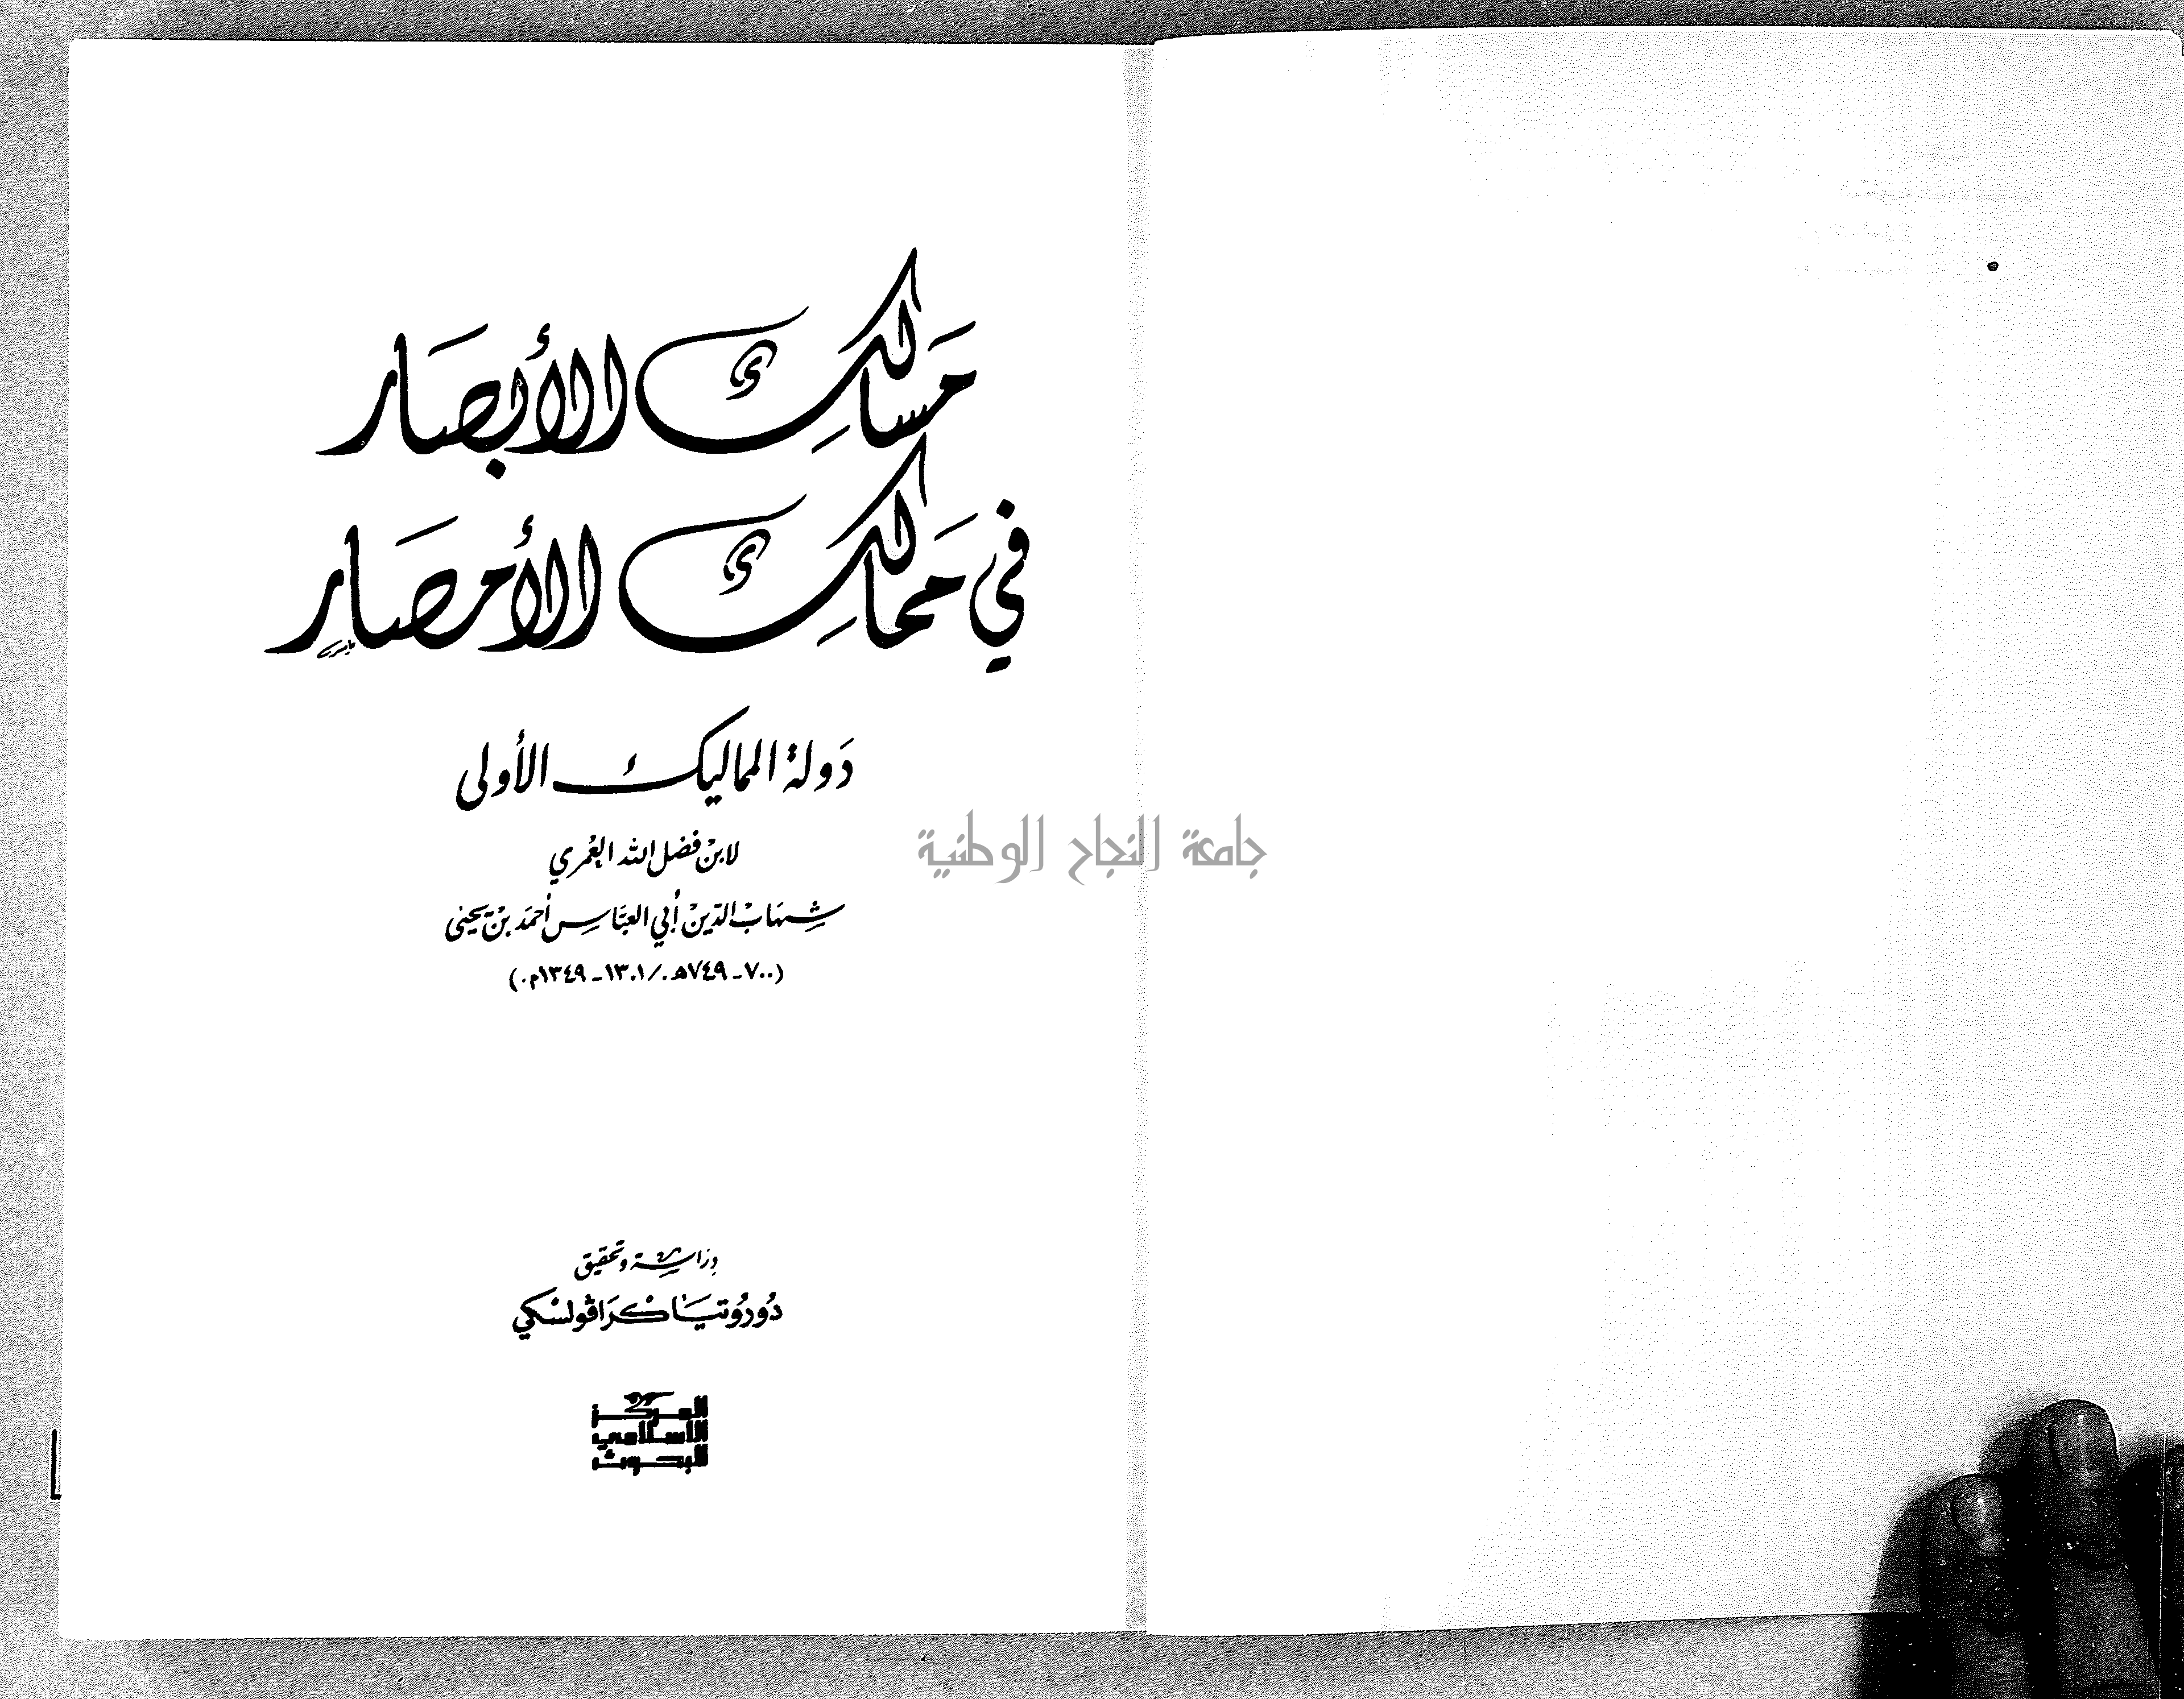 مسالك الأبصار
في ممالك الأمصار
دولة المماليك الأولى
لابن فضل الله العمري
شهاب الدين أبي العباس أحمد بن يحيى
(٧٠٠ - ٧٤٩هـ. / ١٣٠١ - ١٣٤٩م.)
جامعة النجاح الوطنية
دراسة وتحقيق
دوروتيا كرافولسكي
المركز
الإسلامي
للبحوث